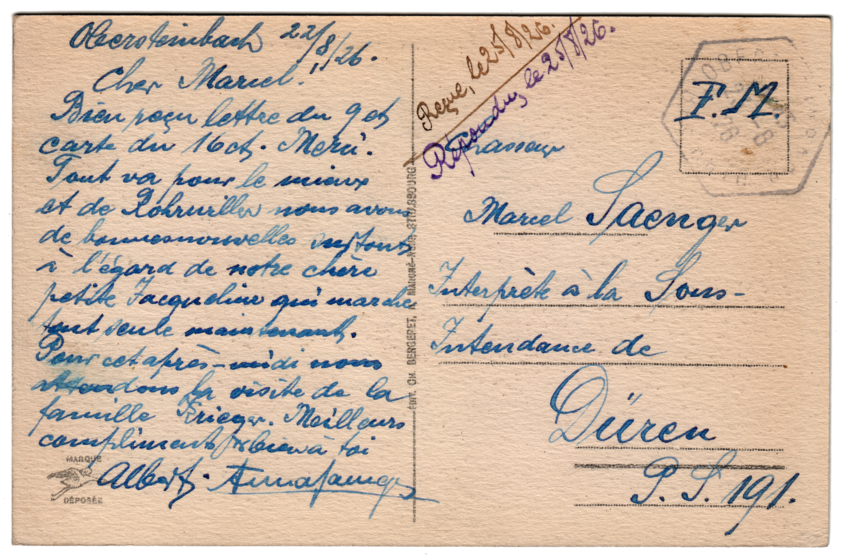 Obersteinbach 22/8/26.
Cher Marcel!
Bien reçu lettre du 9 et
carte du 16 ct. Merci.
Tout va pour le mieux
et de Rohrwiller nous avons
de bonnes nouvelles surtout
à l'égard de notre chère
petite Jacqueline qui marche
tout seule maintenant.
Pour cet après-midi nous
attendons la visite de la
famille Krieger. Meilleurs
compliments bien à toi
Albert.
MARQUE
DÉPOSÉE
EDIT. CH. BERGERET, STRASBOURG
Reçue, le 25/8/26.
Répondu, le 25/8/26.
F. M.
Marcel Saenger
Interprète à la Sous-
Intendance de
Düren
P. S. 191.